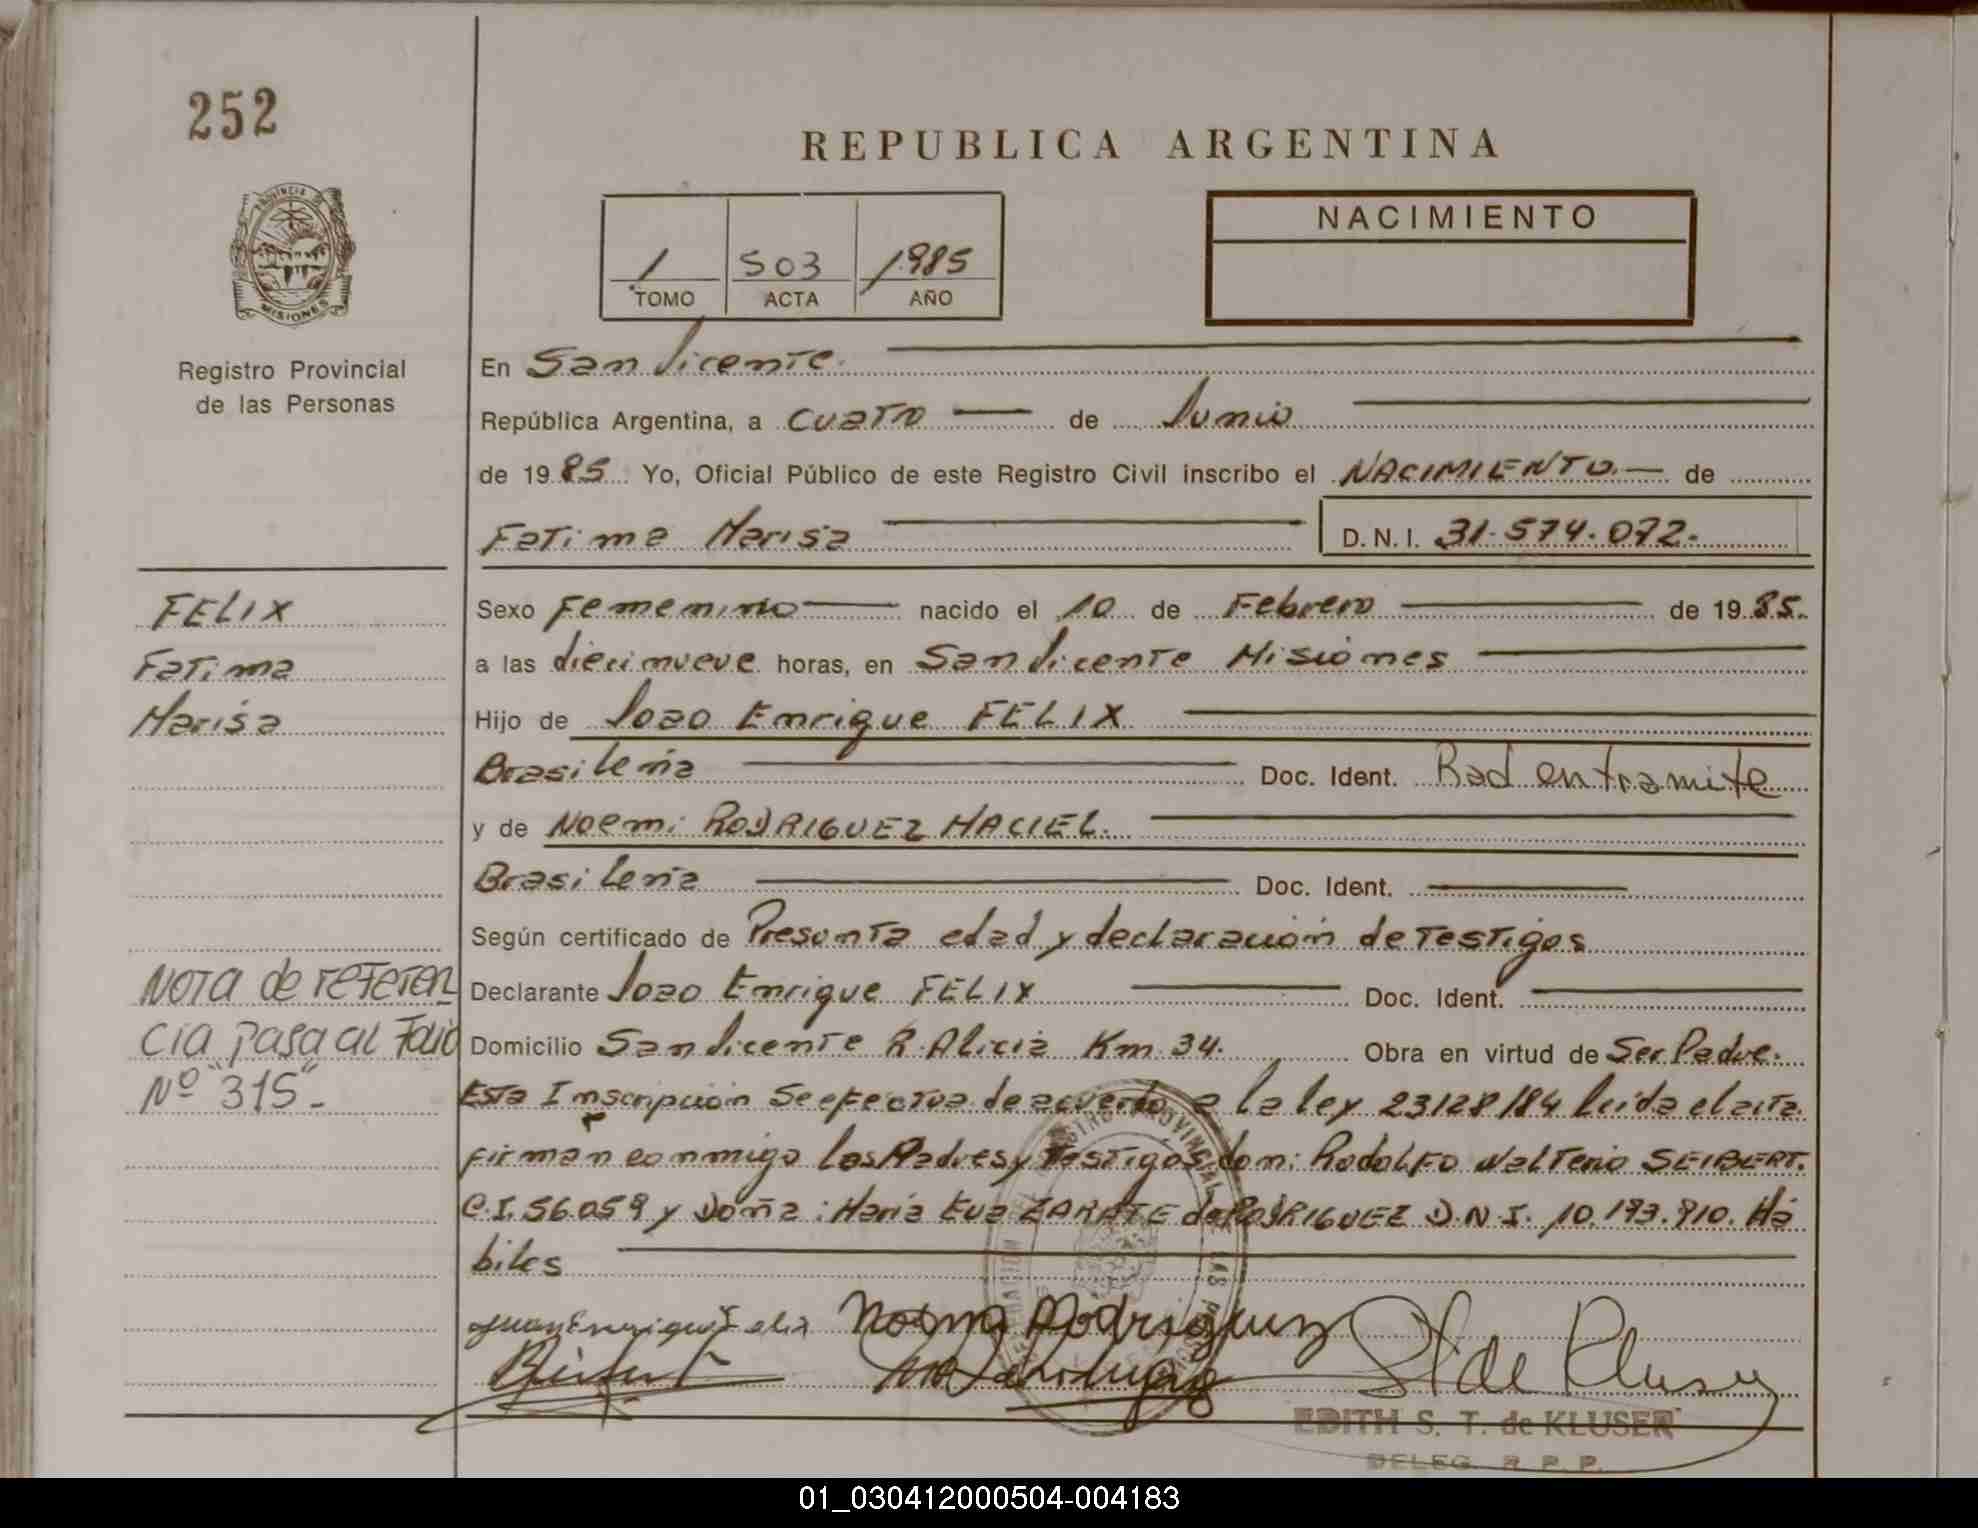 252
REPUBLICA ARGENTINA
PROVINCIA D
MISIONES
Registro Provincial
de las Personas
1 503 1985
TOMO ACTA AÑO
NACIMIENTO
En San Vicente.
República Argentina, a cuatro de Junio
de 1985 Yo, Oficial Público de este Registro Civil inscribo el NACIMIENTO. de
Fatima Marisa D.N.I. 31.574.072.
FELIX
Fatima
Marisa
Sexo Femenino nacido el 10 de Febrero de 1985.
a las diecinueve horas, en San Vicente Misiones
Hijo de Joao Enrique FELIX
Brasileña Doc. Ident. Rad en tramite
y de Noemi RODRIGUEZ MACIEL.
Brasileña Doc. Ident.
Según certificado de Presunta edad y declaración de Testigos
Declarante Joao Enrique FELIX Doc. Ident.
Domicilio San Vicente R. Alicia Km 34. Obra en virtud de Ser Padre.
Nota de referen
cia pasa al Folio
Nº "315"-
Esta Inscripción se efectua de acuerdo a la ley 23128/84 leida el acta
firman conmigo los Padres y Testigos don: Rodolfo Walterio SEIBERT.
C.I. 56.059 y Doña: Maria Eva ZARATE de RODRIGUEZ D.N.I. 10.193.910. Há
biles
Juan Enrique Felix Rodriguez
St de Kluser
EDITH S. T. de KLUSER
DELEG. R. P. P.
01_030412000504-004183